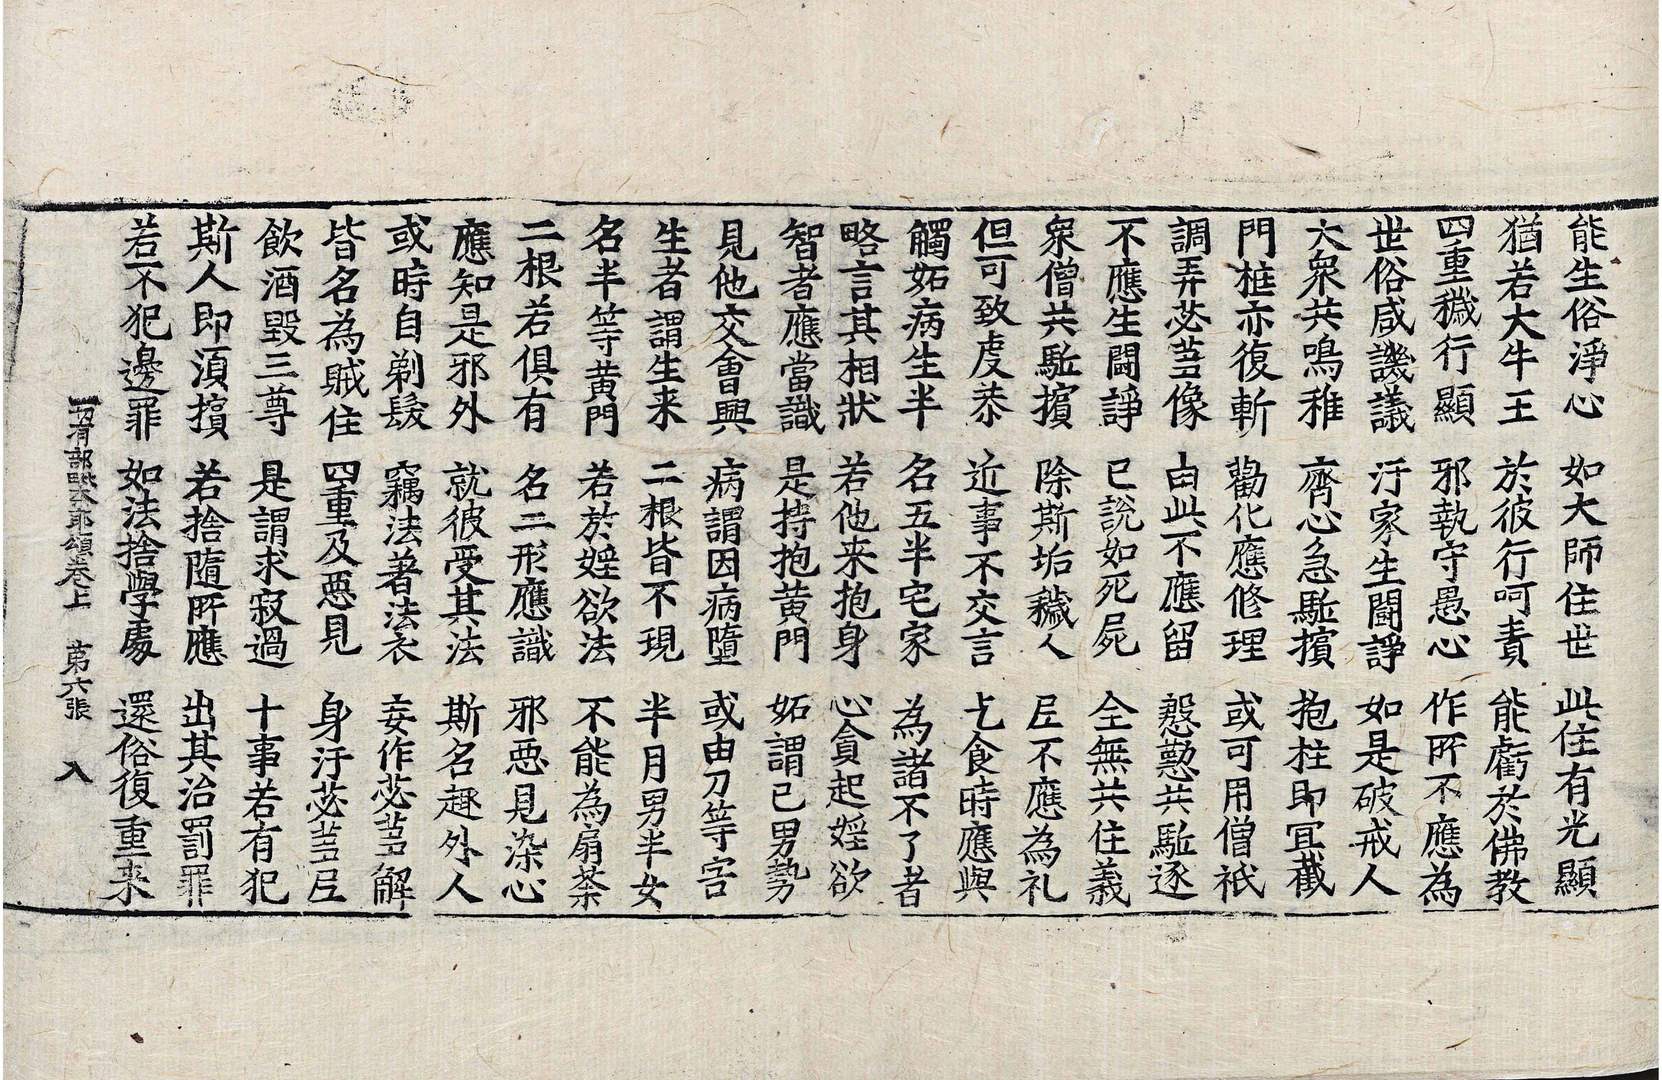 能生俗淨心 如大師住世 此住有光顯
猶若大牛王 於彼行呵責 能虧於佛教
四重穢行顯 邪執守愚心 作所不應為
世俗咸譏議 汙家生鬪諍 如是破戒人
大衆共鳴稚 齊心急駈擯 抱柱即冝截
門桩亦復斬 勸化應修理 或可用僧祇
調弄苾蒭像 由此不應留 慇懃共駈逐
不應生鬪諍 已說如死屍 全無共住義
衆僧共駈擯 除斯垢穢人 𡰱不應為礼
但可致虔恭 近事不交言 乞食時應與
觸妬病生半 名五半宅家 為諸不了者
略言其相狀 若他来抱身 心貪起婬欲
智者應當識 是摶抱黄門 妬謂己男勢
見他交會興 病謂因病墮 或由刀等害
生者謂生来 二根皆不現 半月男半女
名半等黄門 若於婬欲法 不能為扇荼
二根若俱有 名二形應識 邪惡見染心
應知是邪外 就彼受其法 斯名趣外人
或時自剃髮 竊法著法衣 妄作苾蒭解
皆名為賊住 四重及惡見 身汙苾蒭𡰱
飲酒毀三尊 是謂求寂過 十事若有犯
斯人即湏擯 若捨隨所應 出其治罰罪
若不犯邊罪 如法捨學處 還俗復重来
一切有部毗奈耶頌卷上 第六張 入